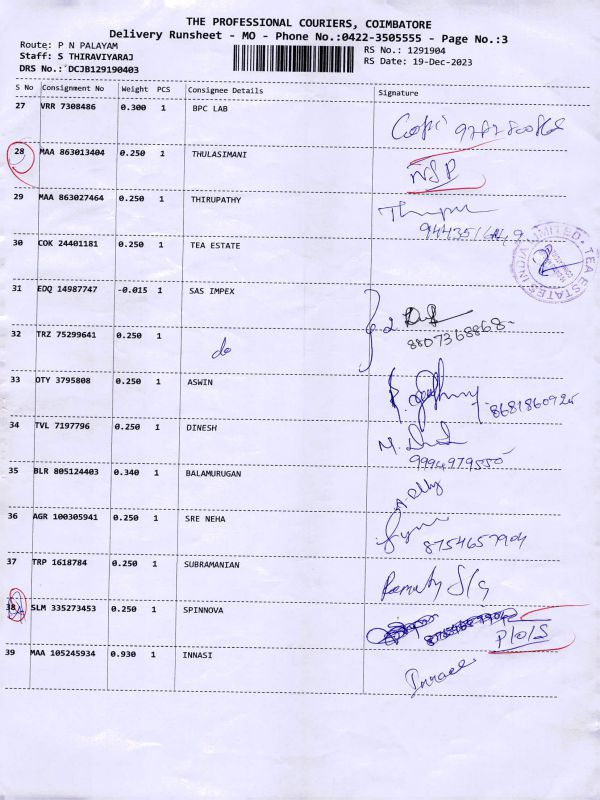 THE PROFESSIONAL COURIERS, COIMBATORE
Delivery Runsheet - MO - Phone No.:0422-3505555 - Page No.:3
Route: P N PALAYAM
Staff: S THIRAVIYARAJ
DRS No.: DCJB129190403
RS No.: 1291904
RS Date: 19-Dec-2023
S No Consignment No Weight PCS Consignee Details Signature
27 VRR 7308486 0.300 1 BPC LAB
Gopi
28 MAA 863013404 0.250 1 THULASIMANI
NSP
29 MAA 863027464 0.250 1 THIRUPATHY
30 COK 24401181 0.250 1 TEA ESTATE
TEA ESTATES INDIA LIMITED
31 EDQ 14987747 -0.015 1 SAS IMPEX
32 TRZ 75299641 0.250 1 do
8807368868
33 OTY 3795808 0.250 1 ASWIN
8681860925
34 TVL 7197796 0.250 1 DINESH
9994979550
35 BLR 805124403 0.340 1 BALAMURUGAN
36 AGR 100305941 0.250 1 SRE NEHA
8754657904
37 TRP 1618784 0.250 1 SUBRAMANIAN
38 SLM 335273453 0.250 1 SPINNOVA
P/O/S
39 MAA 105245934 0.930 1 INNASI